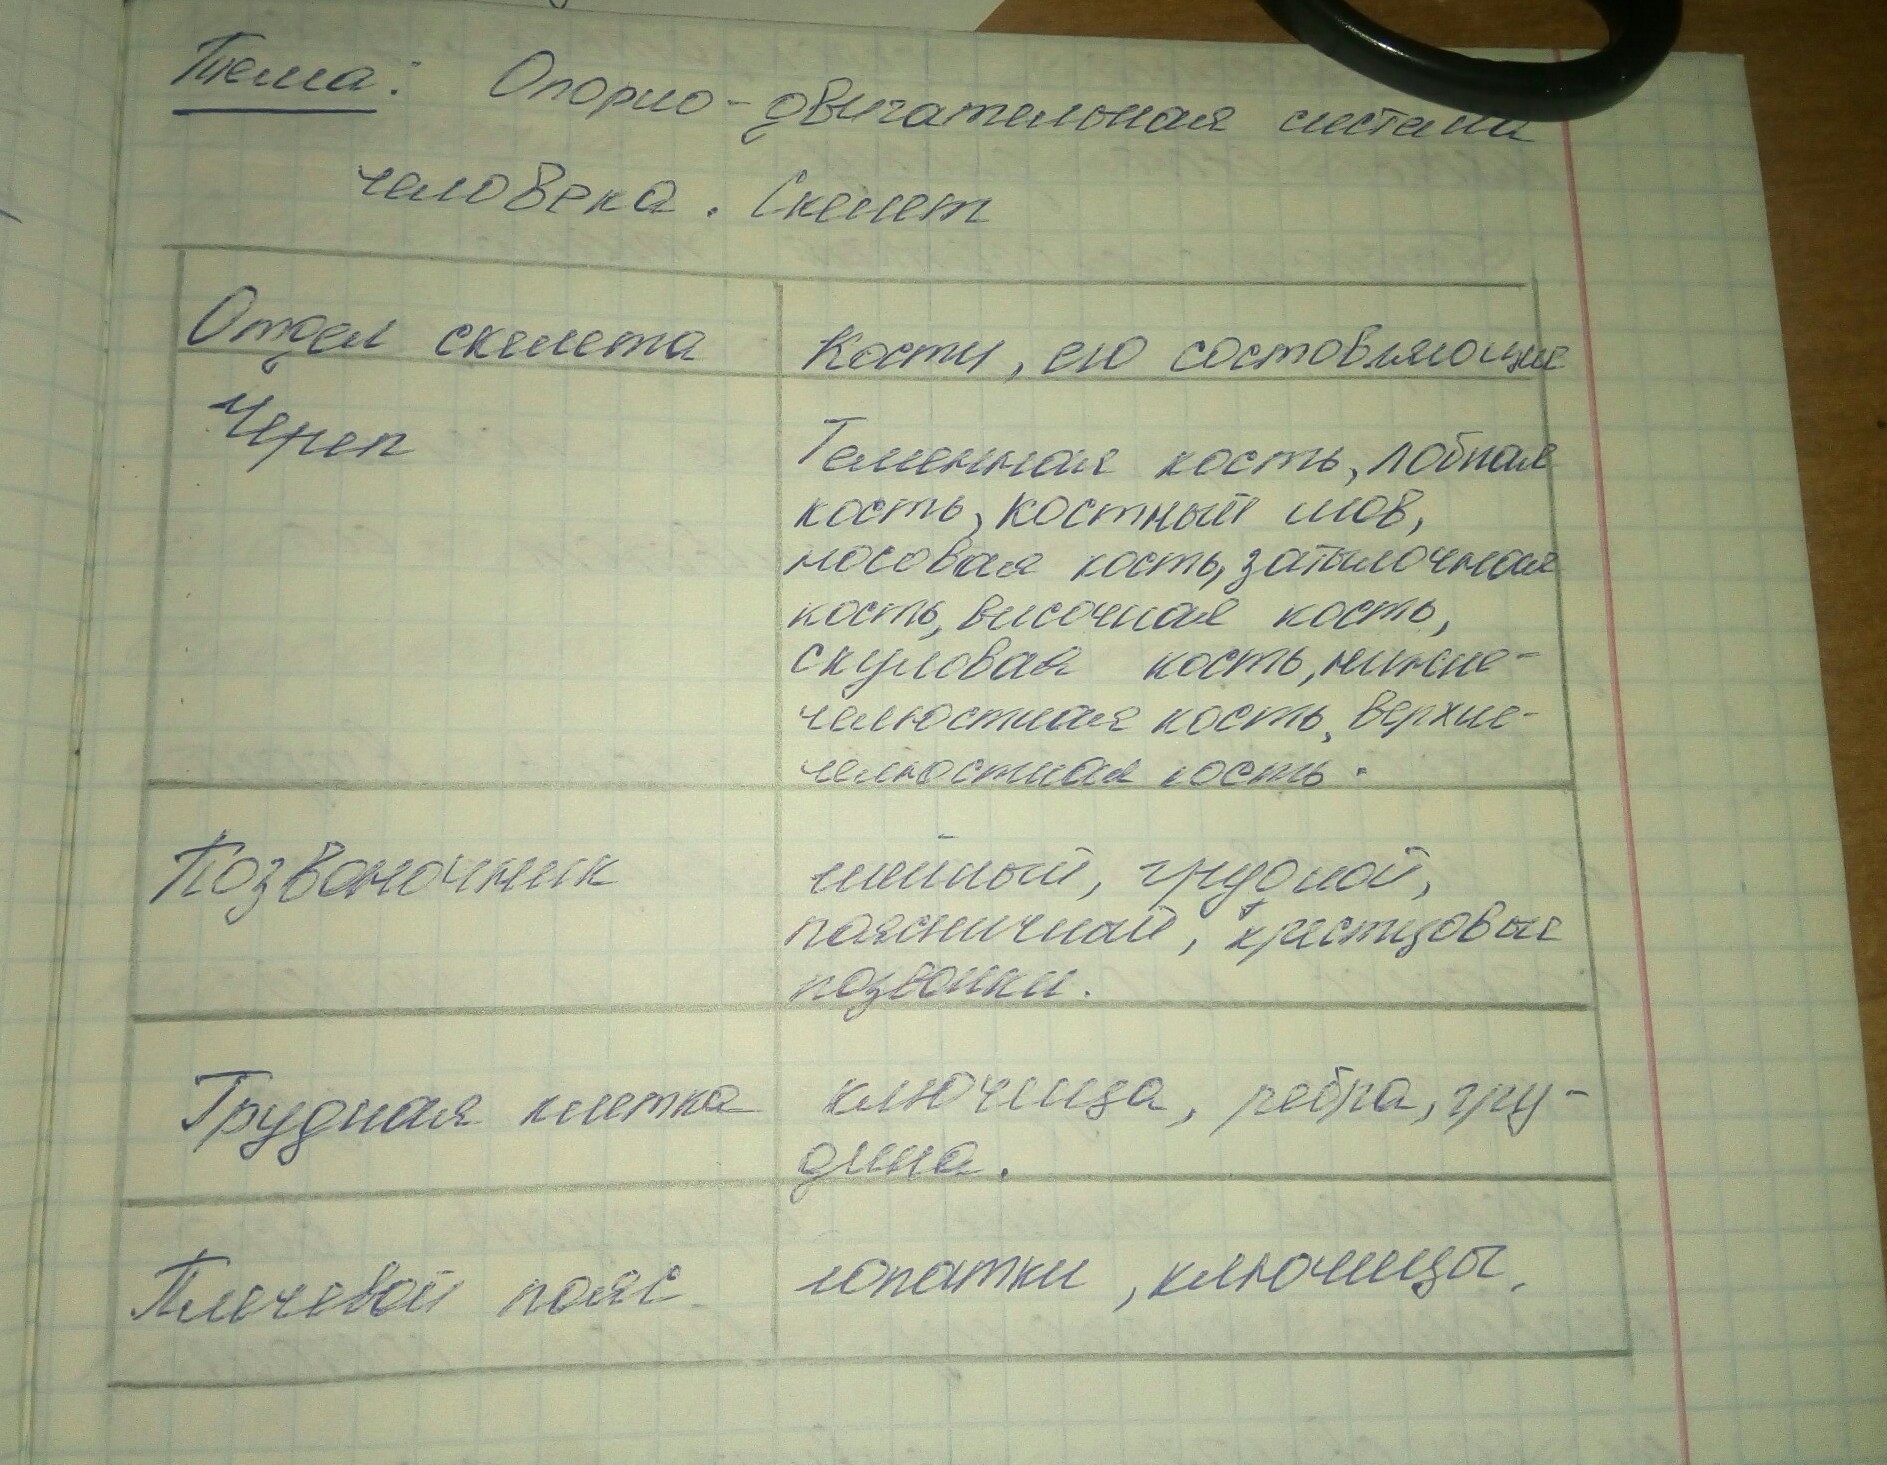 Тема: Опорно-двигательная система
человека. Скелет
Отдел скелета
Кости, его состовляющие
Череп
Теменная кость, лобная
кость, костный шов,
носовая кость, затылочная
кость, височная кость,
скуловая кость, нижне-
челюстная кость, верхне-
челюстная кость.
Позвоночник
шейный, грудной,
поясничный, крестцовые
позвонки.
Грудная клетка
ключица, ребра, гру-
дина.
Плечевой пояс
лопатки, ключицы.